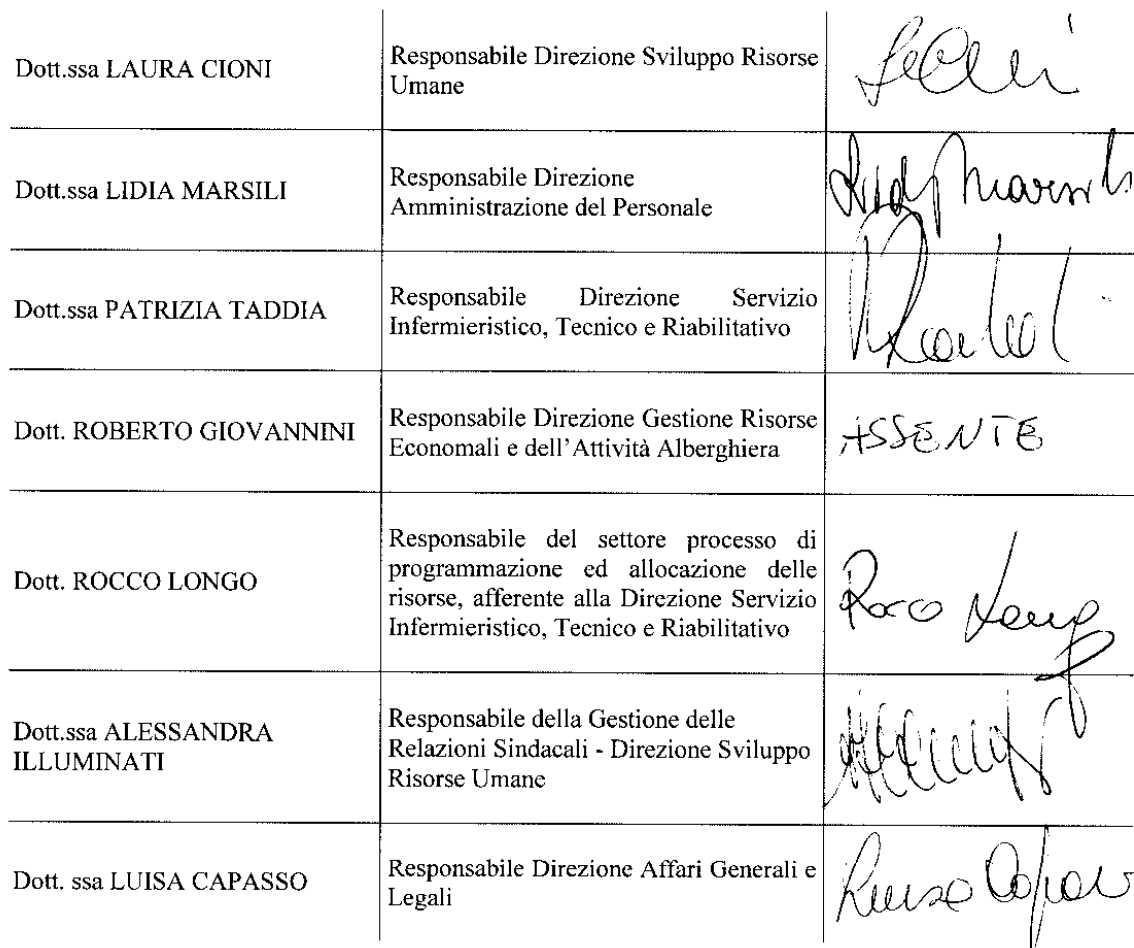 Dott.ssa LAURA CIONI
Responsabile Direzione Sviluppo Risorse
Umane
Dott.ssa LIDIA MARSILI
Responsabile Direzione
Amministrazione del Personale
Dott.ssa PATRIZIA TADDIA
Responsabile Direzione Servizio
Infermieristico, Tecnico e Riabilitativo
Dott. ROBERTO GIOVANNINI
Responsabile Direzione Gestione Risorse
Economali e dell'Attività Alberghiera
ASSENTE
Dott. ROCCO LONGO
Responsabile del settore processo di
programmazione ed allocazione delle
risorse, afferente alla Direzione Servizio
Infermieristico, Tecnico e Riabilitativo
Rocco Longo
Dott.ssa ALESSANDRA
ILLUMINATI
Responsabile della Gestione delle
Relazioni Sindacali - Direzione Sviluppo
Risorse Umane
Dott. ssa LUISA CAPASSO
Responsabile Direzione Affari Generali e
Legali